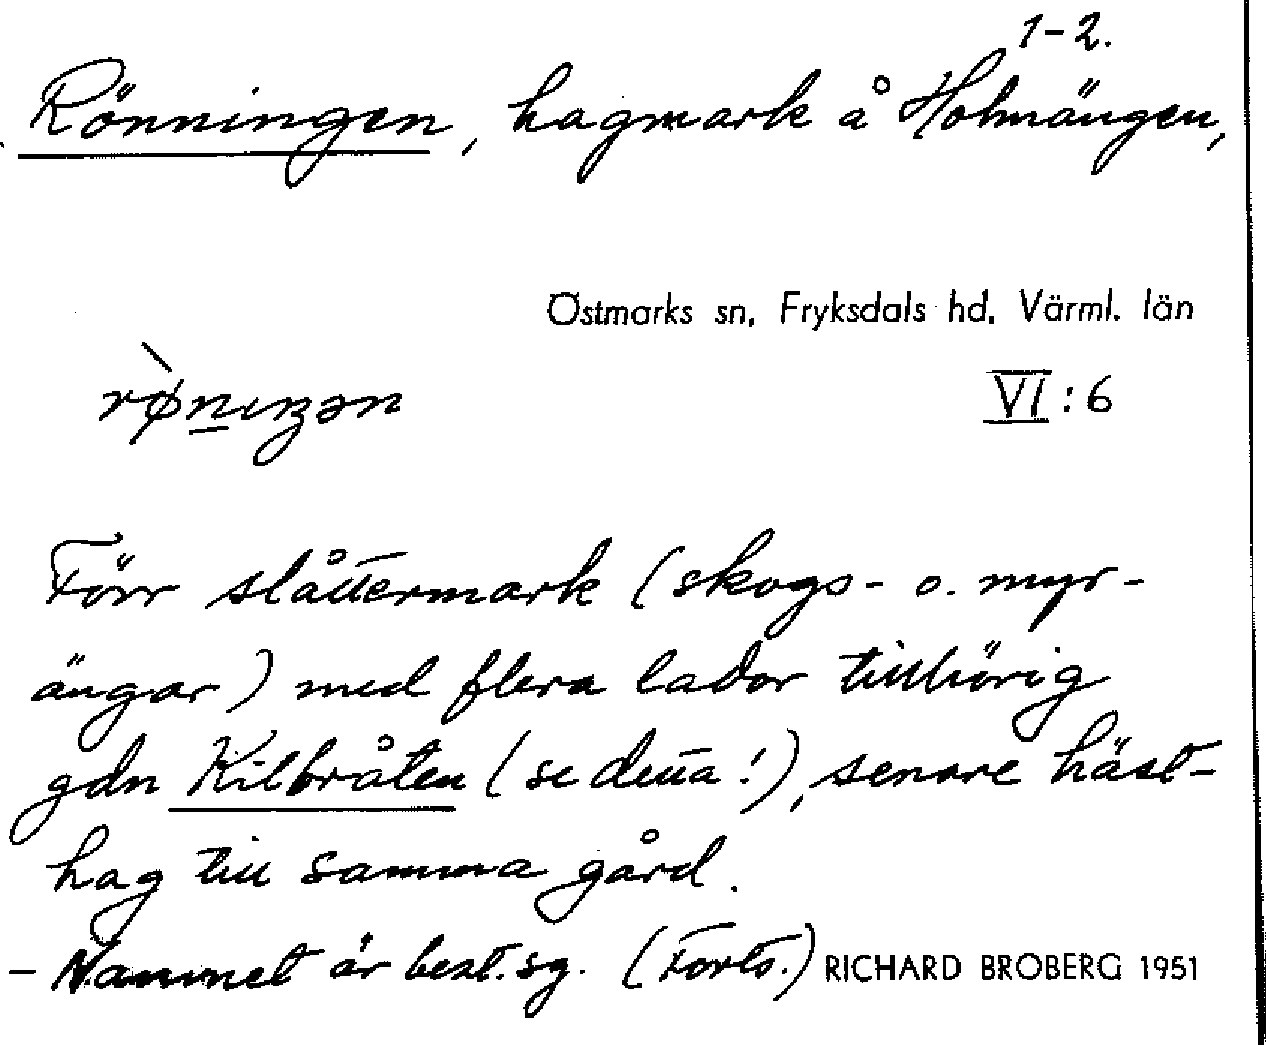 1-2.
Rönningen, hagmark å Holmängen,
Östmarks sn, Fryksdals hd, Värml. län
VI : 6
Förr slåttermark (skogs- o. myr-
ängar) med flera lador tillhörig
gdn Kilbråten (se detta!), senare häst-
hag till samma gård.
- Namnet är best. sg. (Forts.) RICHARD BROBERG 1951